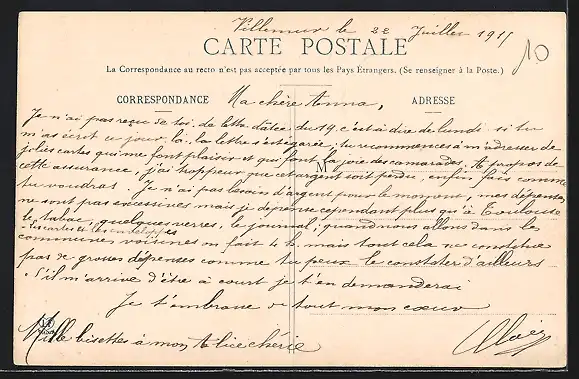 Villemur le 22 Juillet 1915
10
CARTE POSTALE
La Correspondance au recto n'est pas acceptée par tous les Pays Étrangers. (Se renseigner à la Poste.)
CORRESPONDANCE
Ma chère Anna,
ADRESSE
Je n'ai pas reçu de toi de lettre datée du 19 c'est à dire de lundi si tu
m'as écrit ce jour là, la lettre s'est égarée; tu recommences à m'adresser de
jolies cartes qui me font plaisir et qui font la joie des camarades. A propos de
M
cette assurance, j'ai peur que cet argent soit perdu, enfin, fais comme
tu voudras. Je n'ai pas besoin d'argent pour le moment, mes dépenses
ne sont pas excessives mais je dépense cependant plus qu'à Toulouse
le tabac, quelques verres, le journal; quand nous allons dans les
les cartes et les enveloppes
communes voisines on fait 4 h. mais tout cela ne constitue
pas de grosses dépenses comme tu peux le constater d'ailleurs
S'il m'arrive d'être à court je t'en demanderai
Je t'embrasse de tout mon coeur
Mille bisettes à mon Alice chérie